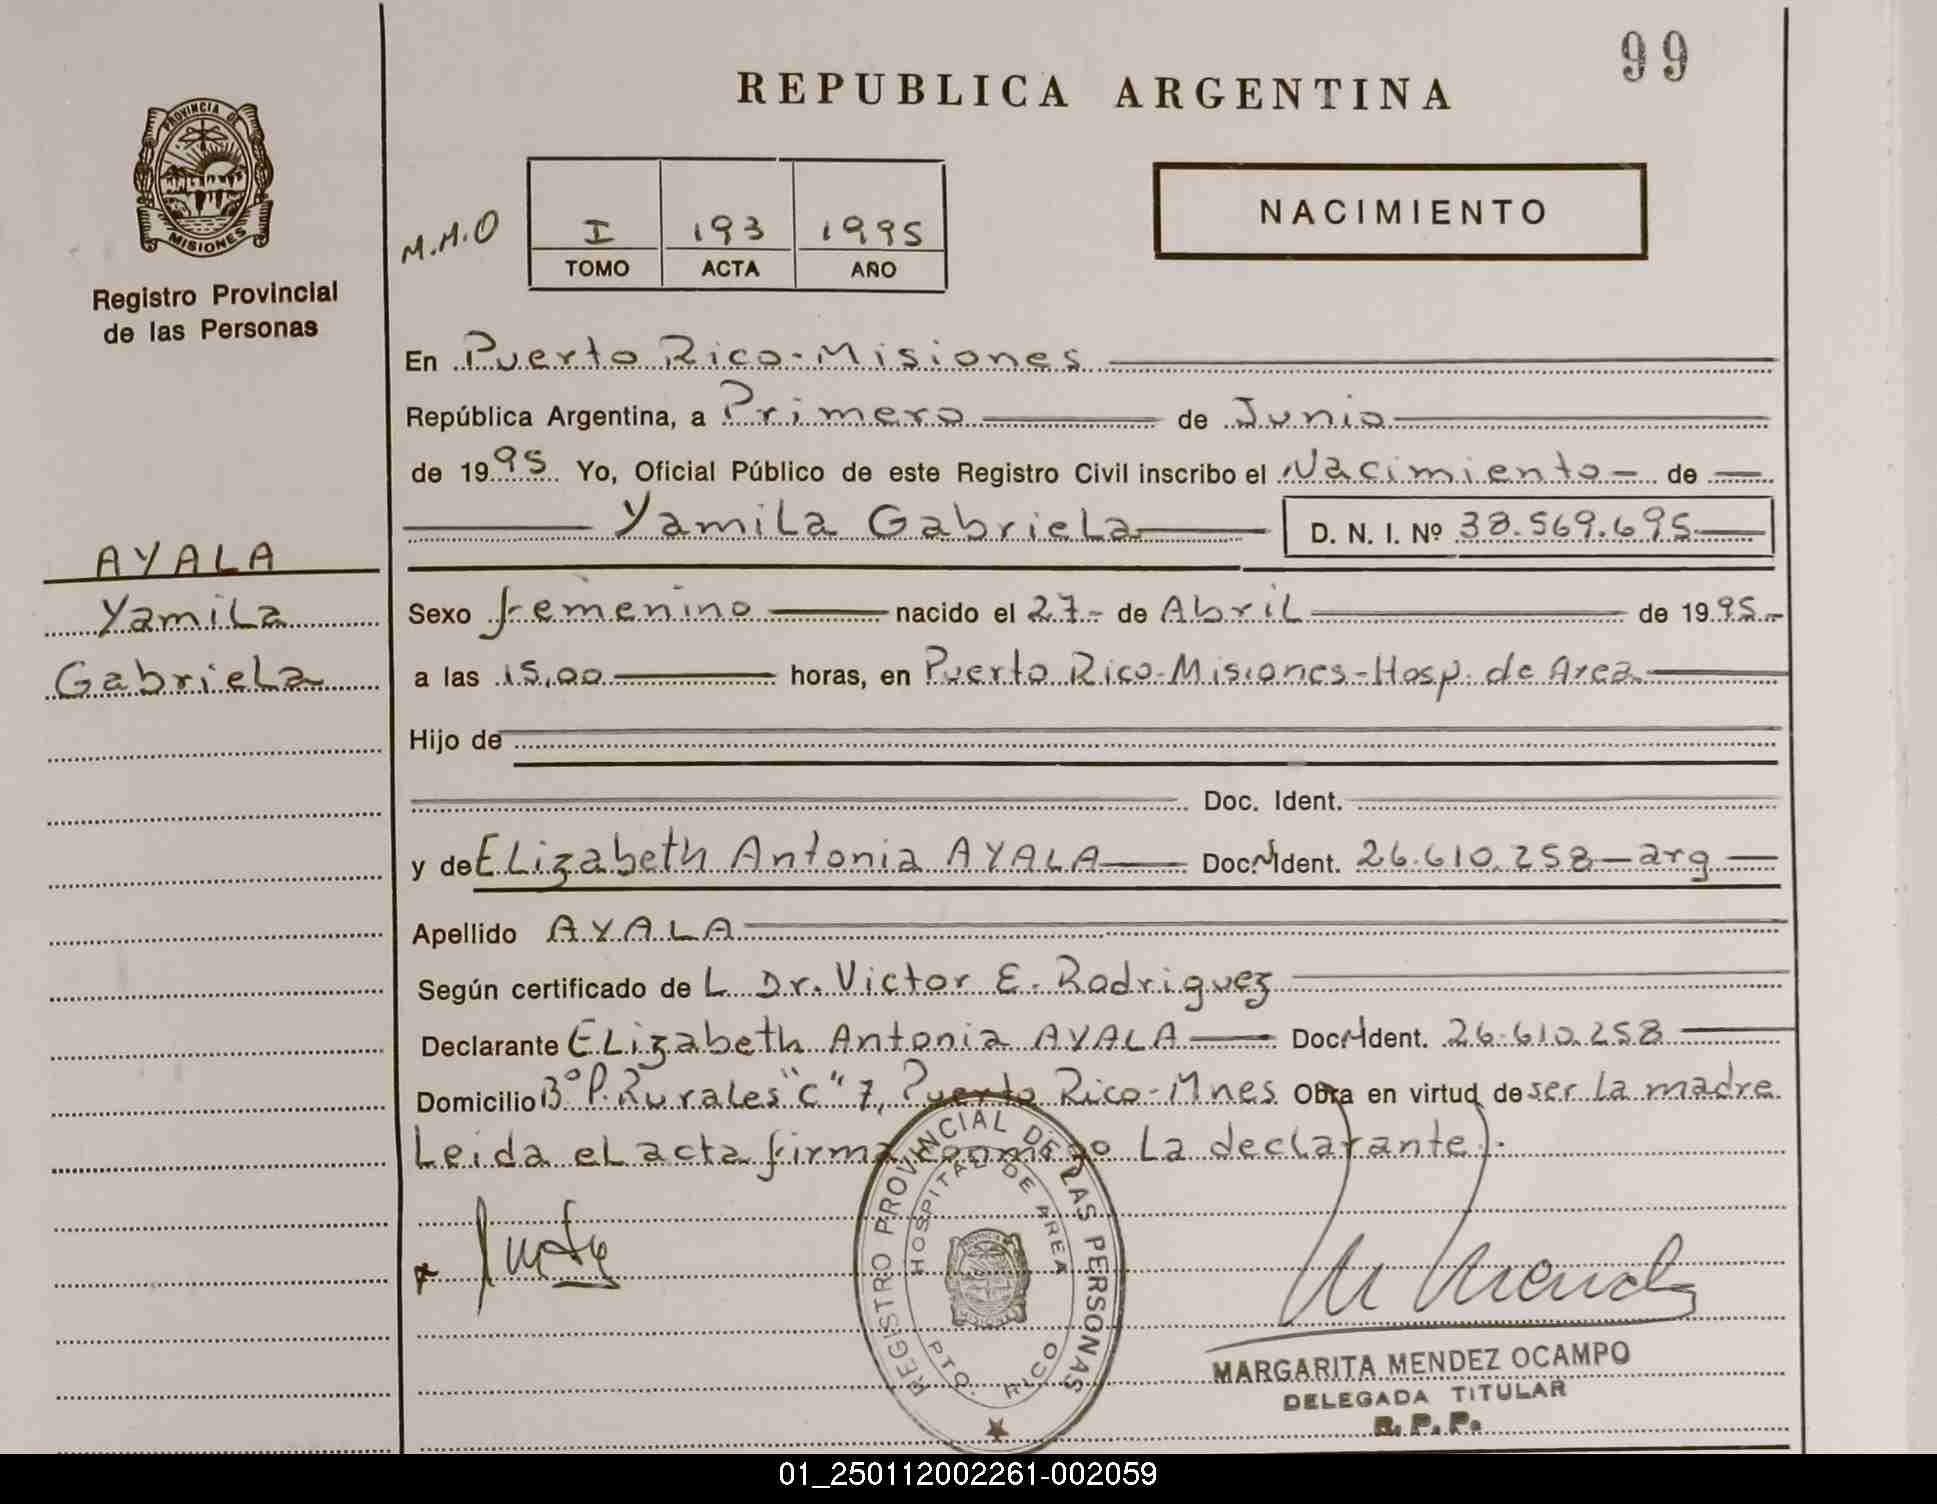 99
REPUBLICA ARGENTINA
PROVINCIA DE
MISIONES
Registro Provincial
de las Personas
M.M.O
I 193 1995
TOMO ACTA AÑO
NACIMIENTO
En Puerto Rico-Misiones
República Argentina, a Primero de Junio
de 1995 Yo, Oficial Público de este Registro Civil inscribo el Nacimiento de
Yamila Gabriela D. N. I. Nº 38.569.695
AYALA
Yamila
Gabriela
Sexo femenino nacido el 27 de Abril de 1995
a las 15,00 horas, en Puerto Rico-Misiones-Hosp. de Area
Hijo de
Doc. Ident.
y de Elizabeth Antonia AYALA Doc. Ident. 26.610.258 - arg
Apellido AYALA
Según certificado de L Dr. Victor E. Rodriguez
Declarante Elizabeth Antonia AYALA Doc. Ident. 26.610.258
Domicilio Bº P. Rurales "C" 7, Puerto Rico-Mnes Obra en virtud de ser la madre
Leida el acta firma conmigo la declarante.
REGISTRO PROVINCIAL DE LAS PERSONAS
HOSPITAL DE AREA
PTO. RICO
MISIONES
MARGARITA MENDEZ OCAMPO
DELEGADA TITULAR
R. P. P.
01_250112002261-002059